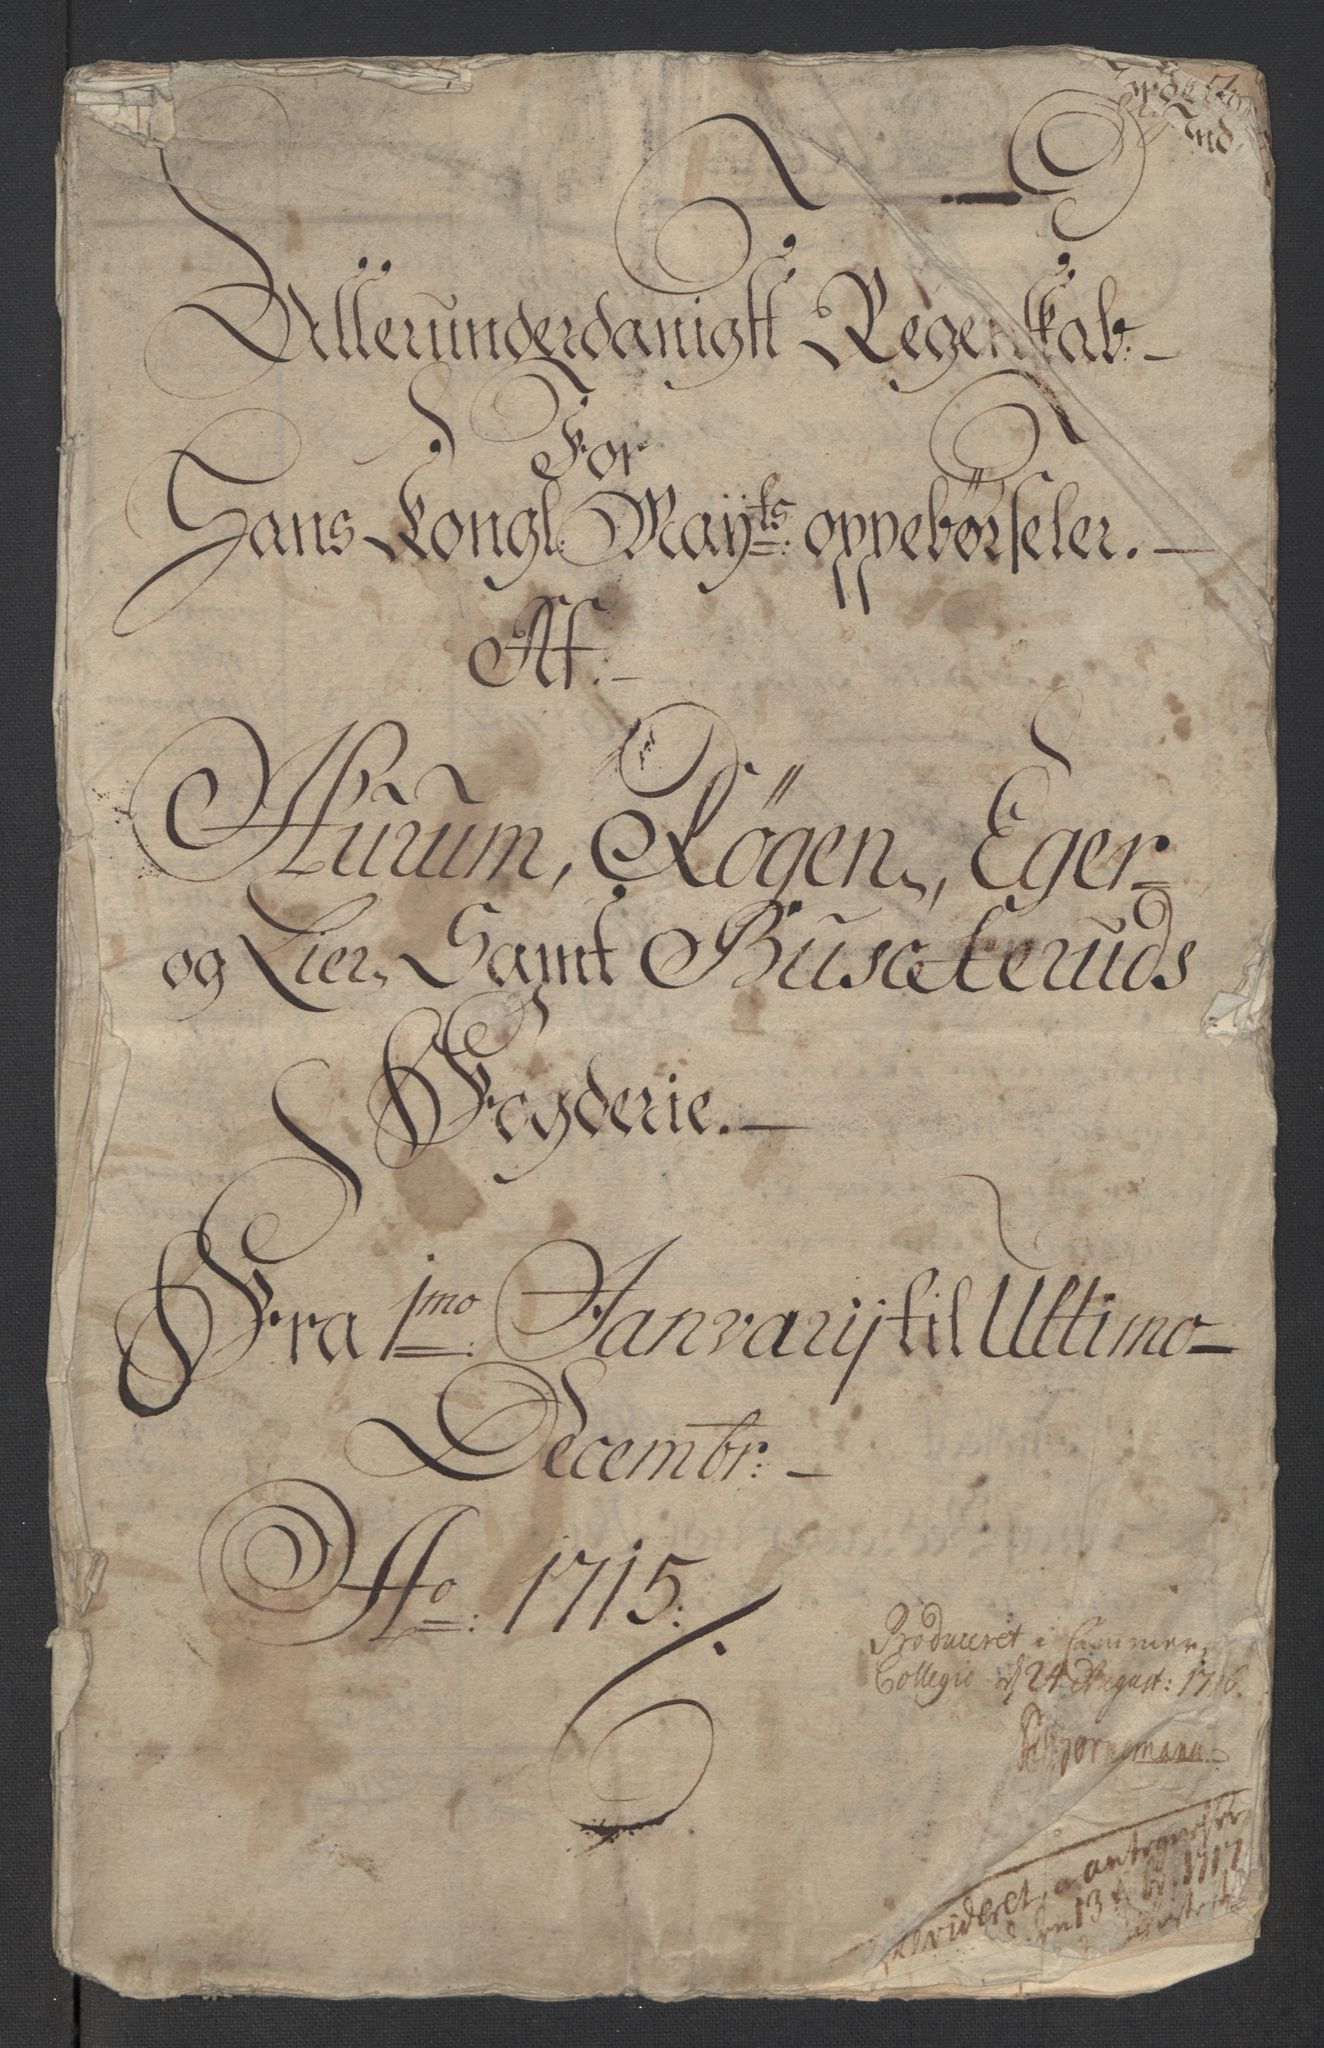 Allerunderdanigst Regenskab:
For
Hans Kongl: Maÿts: oppebørseler.
Af.
Hurum, Røgen, Eger
og Lier, Samt Buskeruds
Fogderie.
Fra 1mo: Janvarij til Ultimo
Decembr:
Ao: 1715.
Produceret i Cammer
Collegio d 24 August: 1716.
Revideret, antegnelser
den 13 1717